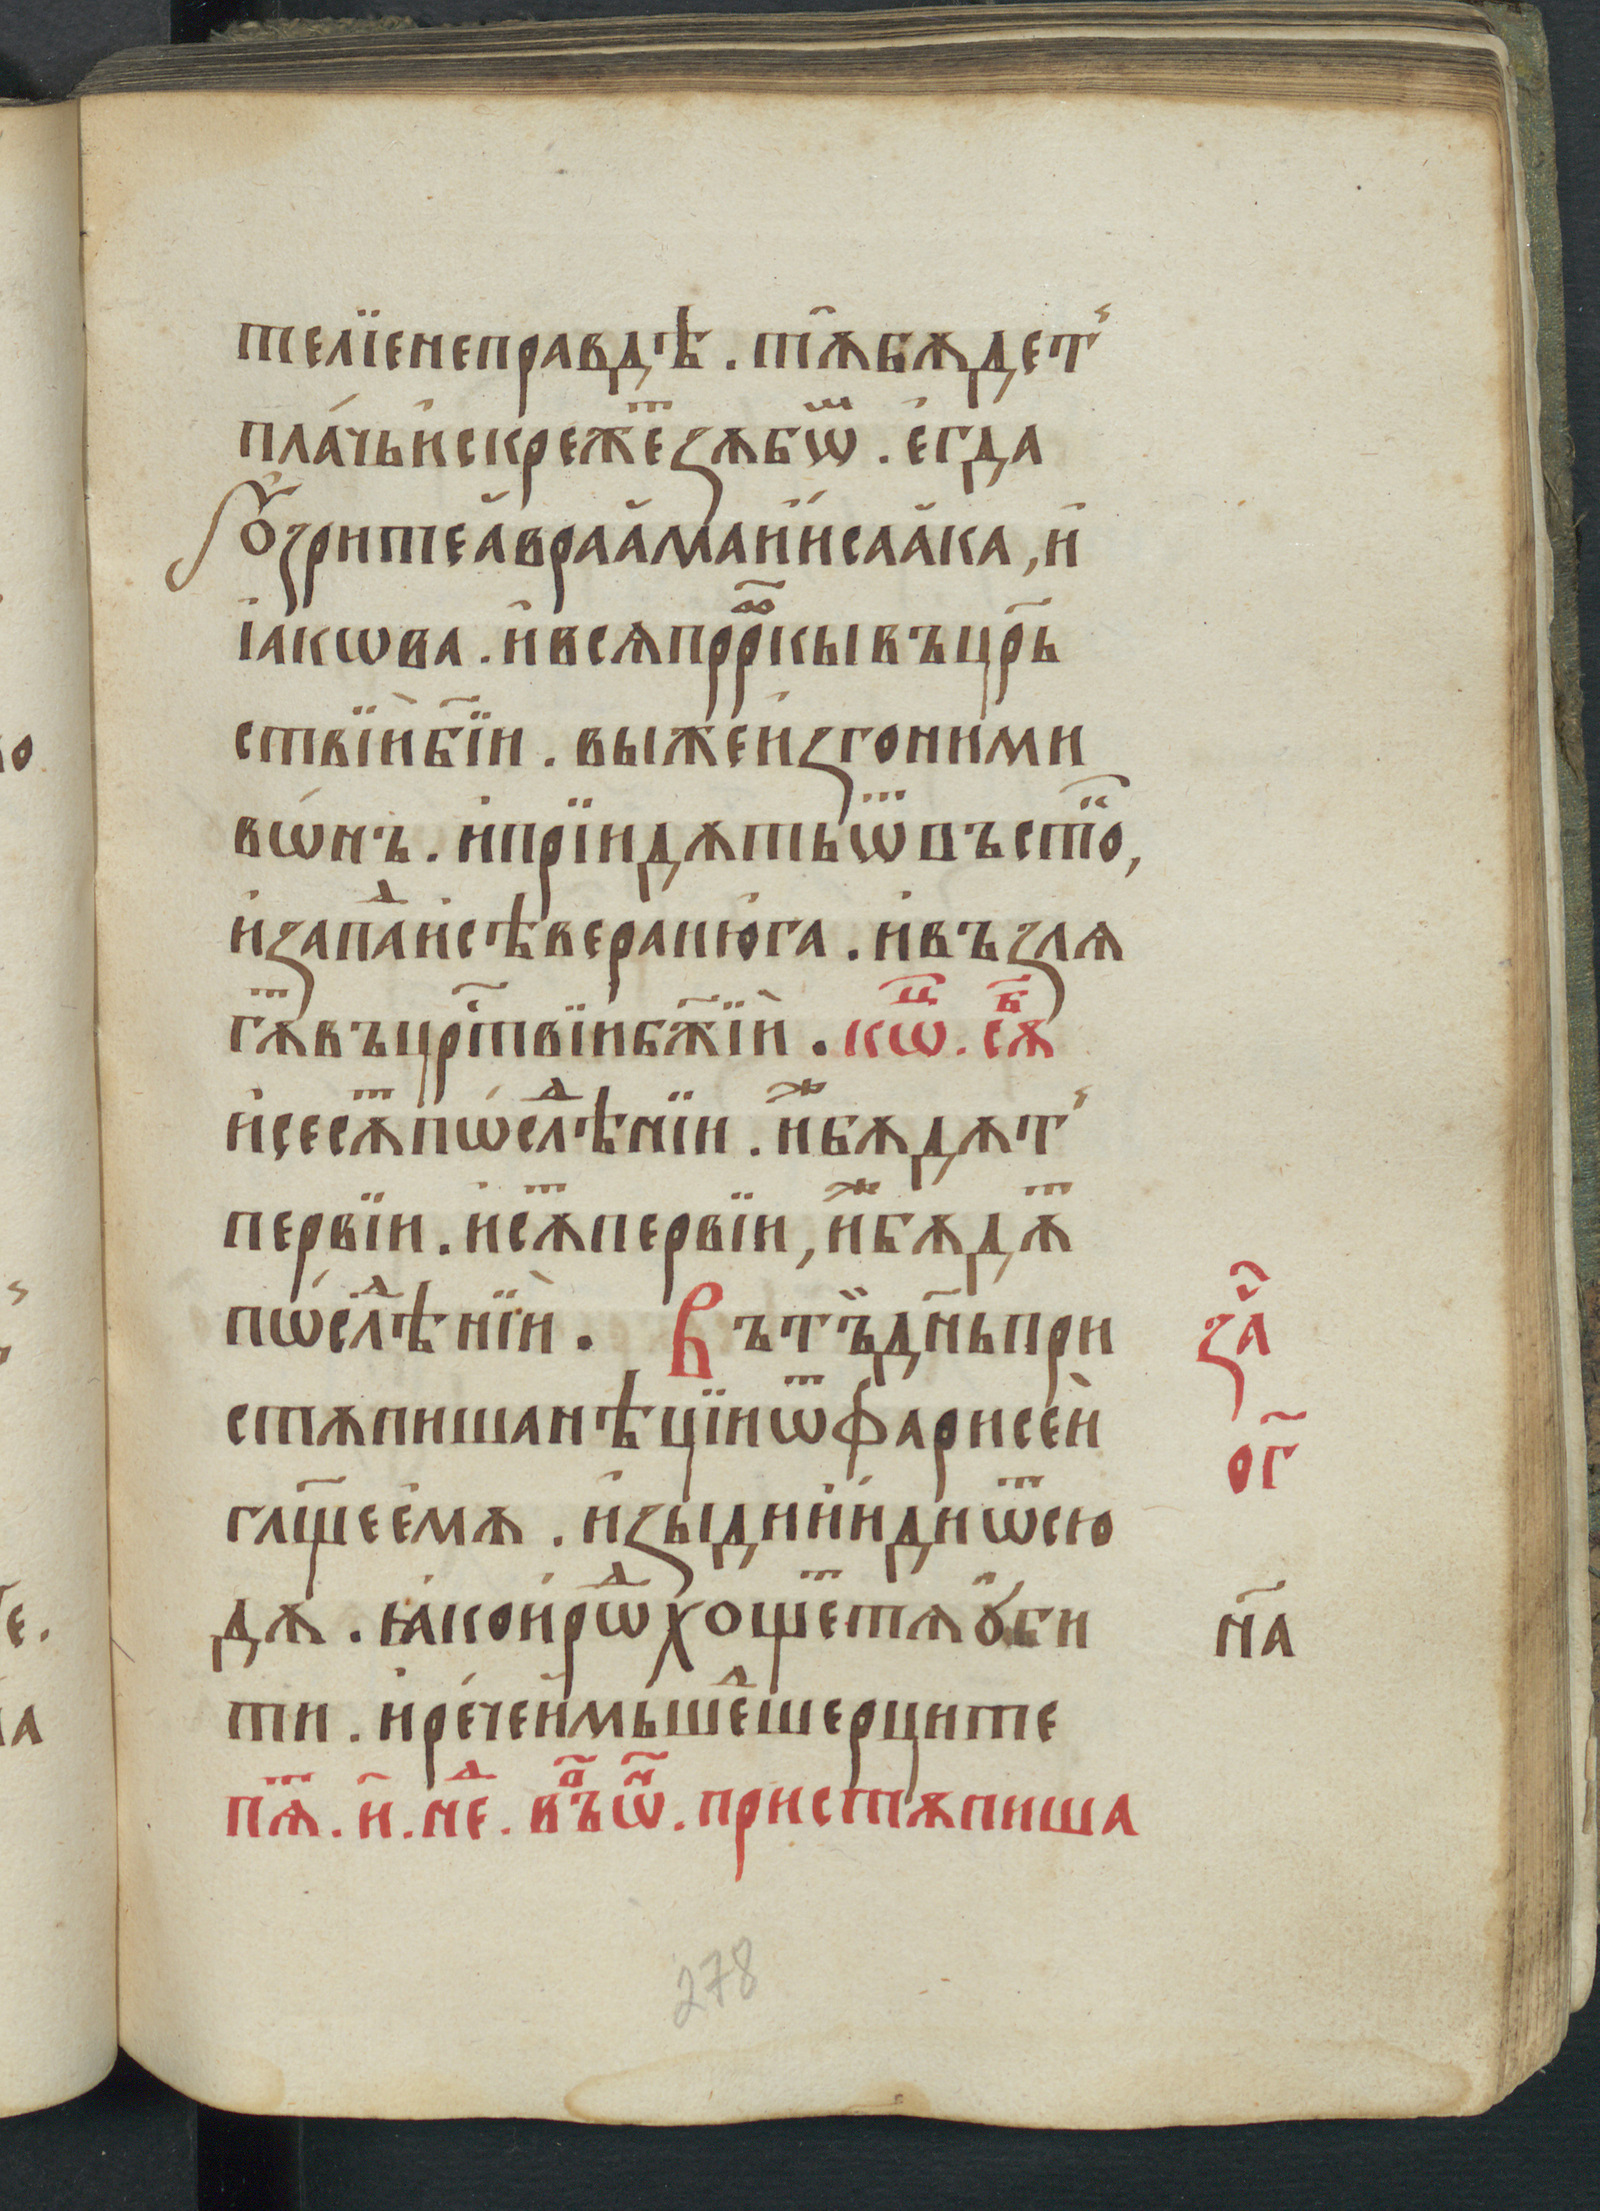 телїе неправдѣ . тꙋ̑ бѫдет꙽
пла́чь и҆ скреже ⷮ зѫбѡ ⷨ . є҆гда
ѹ҆́зрите а҆враа҆ма и҆ и҆саа҆ка , и҆
і҆а҆кѡва . и҆ всѧ прⷪ҇ркы въ цр҇ь
ствїѝ бж҃їи . вы же и҆згоними
вѡ́нъ . и҆ прїидѫть ѿ въсто ⷦ҇,
и҆ запаⷣ и҆ сѣвера и ю҆га . и҆ възлѧ
гѫ ⷮ въ црⷭ҇твїи бж҃їѝ . кѡⷰ҇ . сѫⷠ҇
и҆ се сѫ ⷮ пѡ́слⷣѣнїи . и҆ ⷤ бѫдѫт꙽
первїи . и҆ сѫ ⷮ первїи , и҆ ⷤ бѫдѫ ⷮ
пѡ́слⷣѣнїѝ . Въ тъ̏ дн҃ь при
стѫпиша нѣцїи ѿ фарисе́й
гл҃ще є҆мѫ . и҆зыди и҆ и҆ди ѿ сю
дѫ . ꙗ҆ко и҆рѡⷣ хоще ⷮ тѧ ѹ҆би
ти . и҆ ре́че и҆мь шеⷣше рците
пѧ ⷮ . и҃ . неⷣ . въⷫ҇ ѡⷩ҇ . пристѫпиша
за ⷱ҇
ог҃
на҃
278